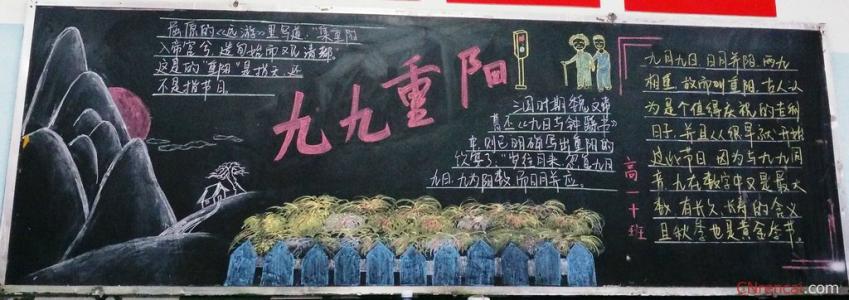 屈原的《远游》里写道："集重阳
入帝宫兮，造旬始而观清都"
这里的"重阳"是指天，还
不是指节日。
九九重阳
三国时期魏文帝
曹丕《九日与钟繇书》
中，则已明确写出重阳的
饮宴了："岁往月来，忽复九月
九日，九为阳数，而日月并应。
九月九日，日月并阳，两九
相重，故而叫重阳，古人认
为是个值得庆祝的吉利
日子，并且从很早就开始
过此节日，因为与九九同
音，九在数字中又是最大
数，有长久、长寿的含义
且秋季也是黄金季节。
高一十班
CNrencai.com